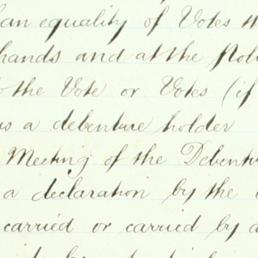 an equality of Votes
hands and at the
to the Vote or Votes (if
as a debenture holder
Meeting of the
a declaration by the
carried or carried by a